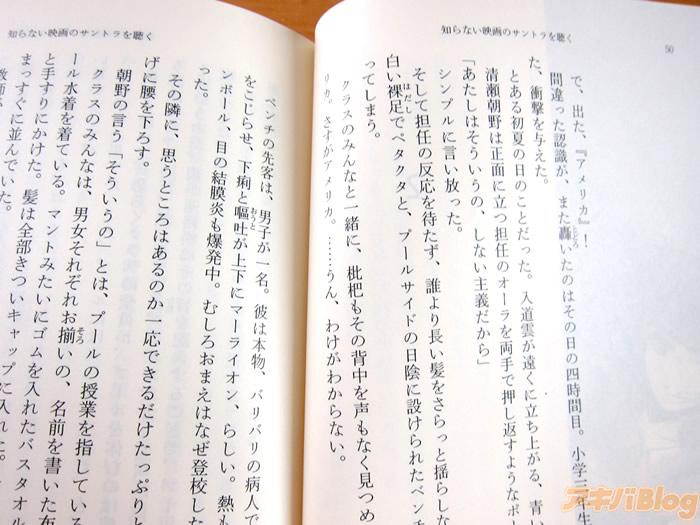 知らない映画のサントラを聴く
50
で、出た、『アメリカ』!
間違った認識が、また轟いたのはその日の四時間目。小学三年生
た、衝撃を与えた。
とある初夏の日のことだった。入道雲が遠くに立ち上がる、青
「あたしはそういうの、しない主義だから」
清瀬朝野は正面に立つ担任のオーラを両手で押し返すようなポ
シンプルに言い放った。
そして担任の反応を待たず、誰より長い髪をさらっと揺らしな
白い裸足でペタクタと、プールサイドの日陰に設けられたベンチ
ってしまう。
クラスのみんなと一緒に、枇杷もその背中を声もなく見つめ
リカ。さすがアメリカ。……うん、わけがわからない。
知らない映画のサントラを聴く
ベンチの先客は、男子が一名。彼は本物、バリバリの病人で
をこじらせ、下痢と嘔吐が上下にマーライオン、らしい。熱も
ンボール、目の結膜炎も爆発中。むしろおまえはなぜ登校し
った。
その隣に、思うところはあるのか一応できるだけたっぷりと
げに腰を下ろす。
朝野の言う「そういうの」とは、プールの授業を指してい
クラスのみんなは、男女それぞれお揃いの、名前を書いた布
ール水着を着ている。マントみたいにゴムを入れたバスタオル
と手すりにかけた。髪は全部きついキャップに入れた。
まっすぐに並んでいた。
アキバBlog